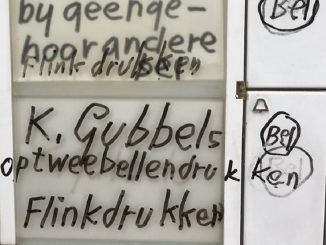 by geenge-
hoor andere
Flink drukken
Bel
K. Gubbels
op twee bellen druk ken
Bel
Flink drukken